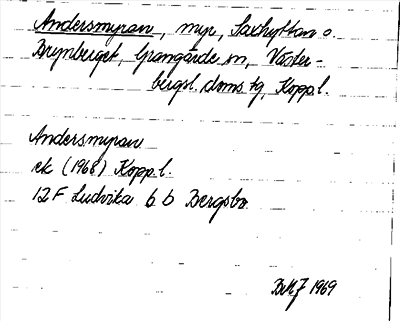 Andersmyran, myr, Saxhyttan o.
Brynberget, Grangärde sn, Väster-
bergsl. doms.tg, Kopp.l.
Andersmyran
ek (1968) Kopp.l.
12F Ludvika 6 b Bergsbo
1969